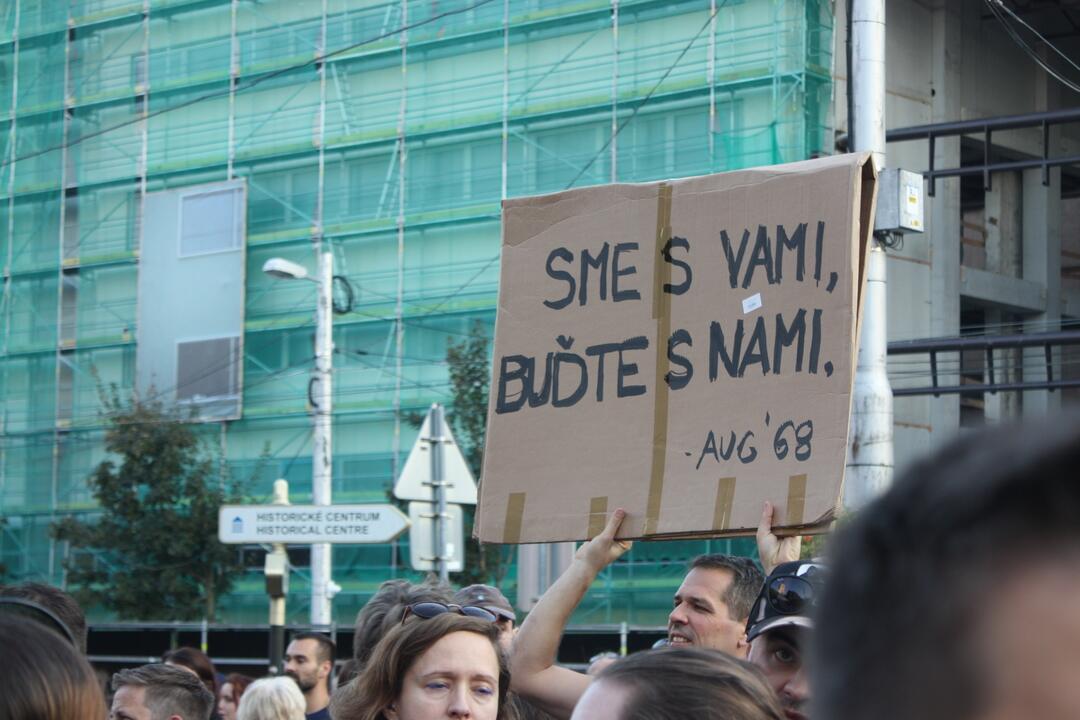 SME S VAMI,
BUĎTE S NAMI.
-AUG '68
HISTORICKÉ CENTRUM
HISTORICAL CENTRE